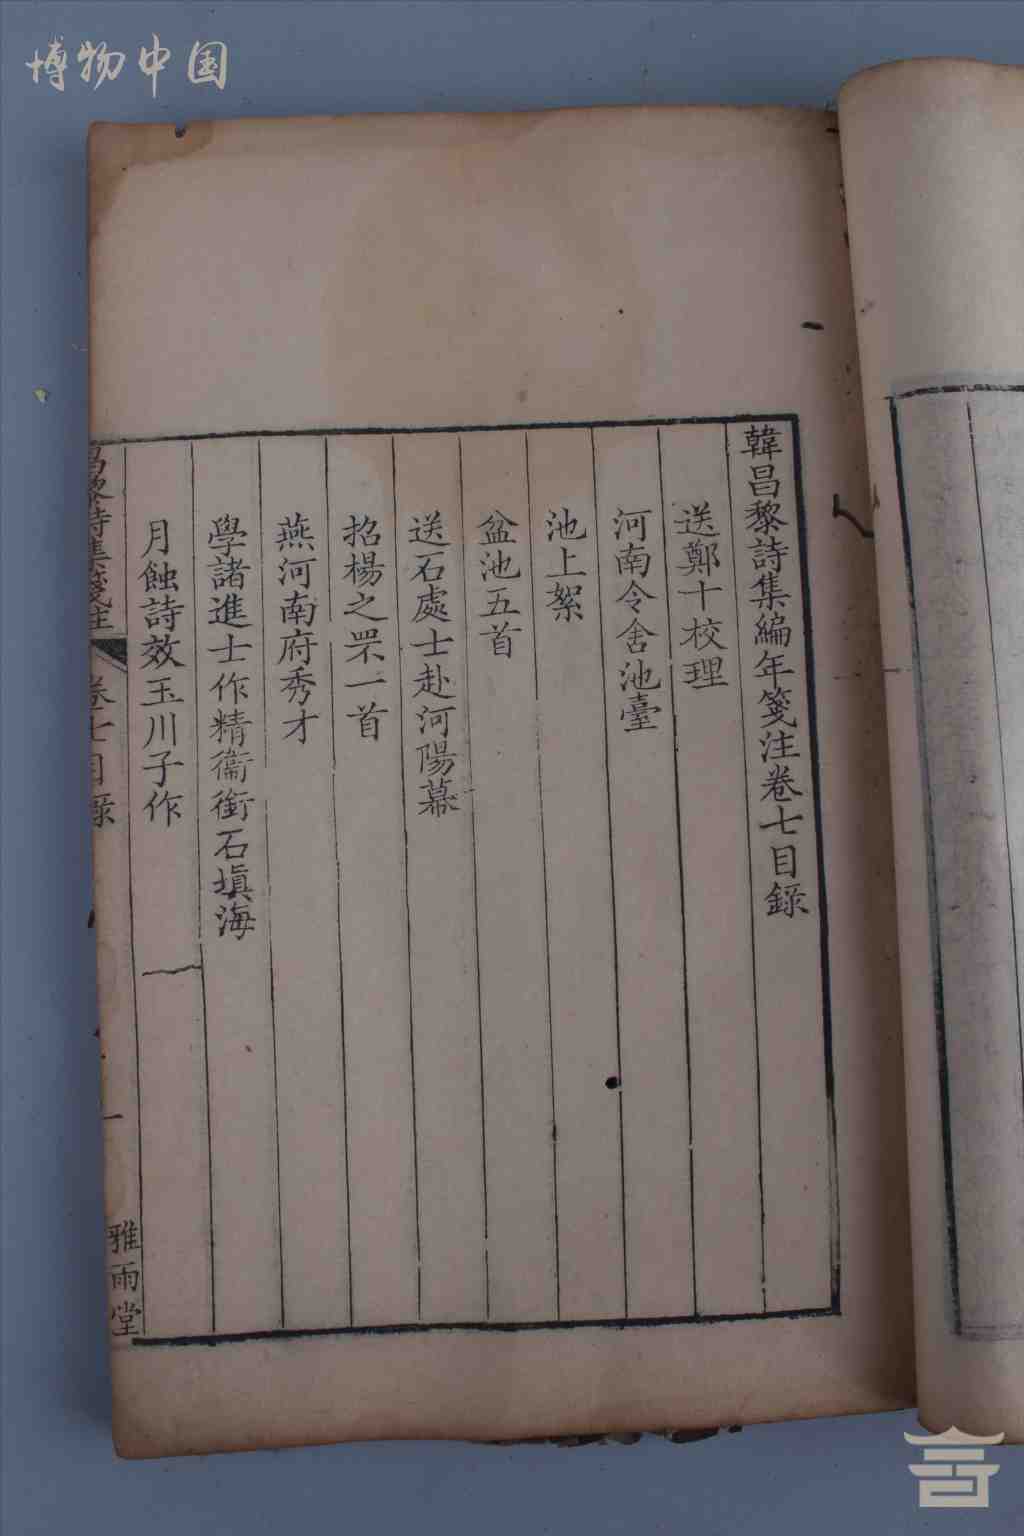 博物中国
韓昌黎詩集編年箋注卷七目錄
送鄭十校理
河南令舍池臺
池上絮
盆池五首
送石處士赴河陽幕
招楊之罘一首
燕河南府秀才
學諸進士作精衞銜石填海
月蝕詩效玉川子作
昌黎詩集箋注
卷七目錄
一
雅雨堂